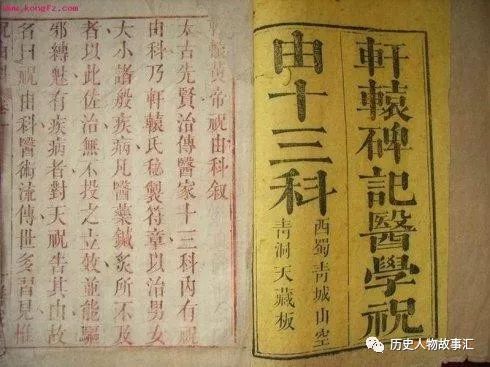 www.kongfz.com
軒轅碑記醫學祝
由十三科
西蜀青城山空
青洞天藏板
軒轅黃帝祝由科叙
太古先賢治傳醫家十三科內有祝
由科乃軒轅氏秘製符章以治男女
大小諸般疾病凡醫藥鍼炙所不及
者以此佐治無不投之立效並能驅
邪縛魅有疾病者對天祝告其由故
名曰祝由科醫術流傳世多習見惟
历史人物故事汇